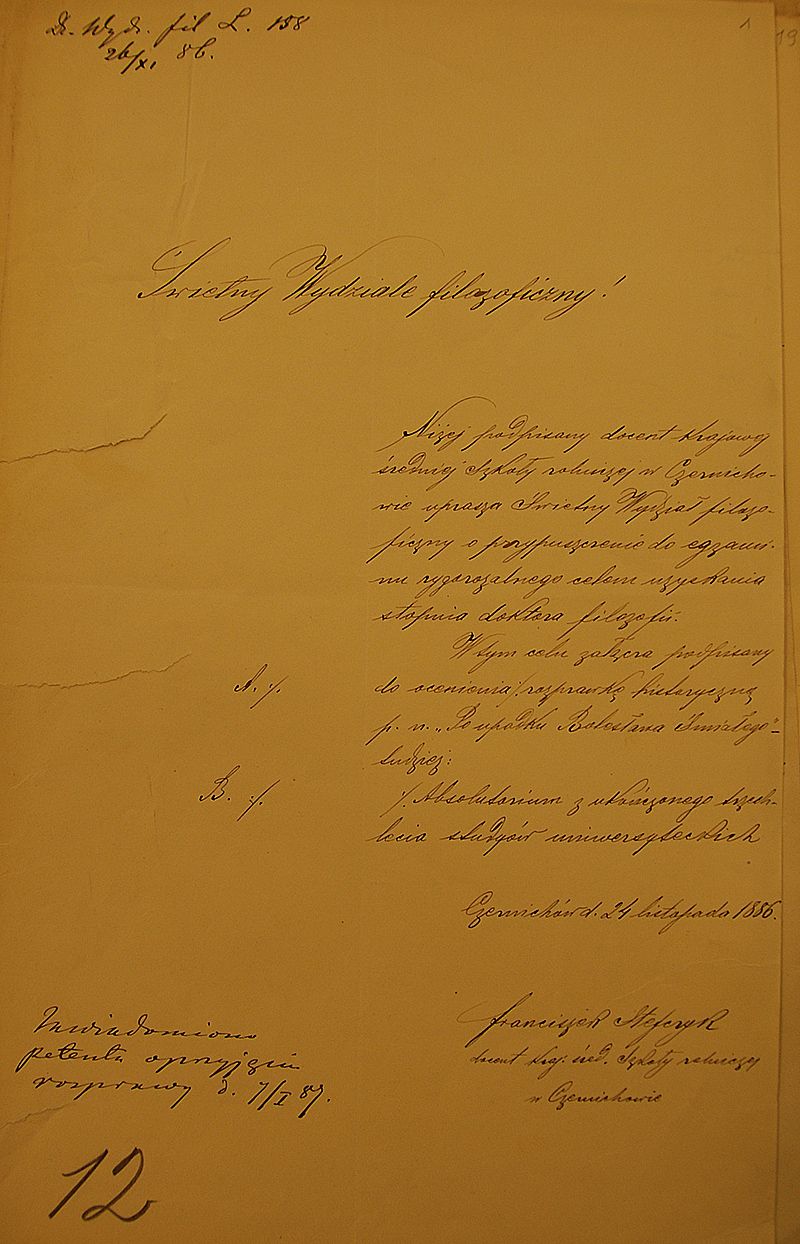 Dz. Wydz. fil L. 158
26/XI 86.
1
19
Świetny Wydziale filozoficzny!
Niżej podpisany docent krajowej
średniej Szkoły rolniczej w Czernicho-
wie uprasza Świetny Wydział filozo-
ficzny o przypuszczenie do egzami-
nu rygorozalnego celem uzyskania
stopnia doktora filozofii.
W tym celu załącza podpisany
A. ·/. do ocenienia ·/. rozprawkę historyczną
p. n. „Po upadku Bolesława Śmiałego"–
tudzież:
B. ·/. ·/. Absolutorium z ukończonego trzech-
lecia studyów uniwersyteckich
Czernichów d. 24 listopada 1886.
Franciszek Stefczyk
docent kraj. śred. Szkoły rolniczej
w Czernichowie
Zawiadomiono
petenta o przyjęciu
rozprawy d. 7/I 87.
12